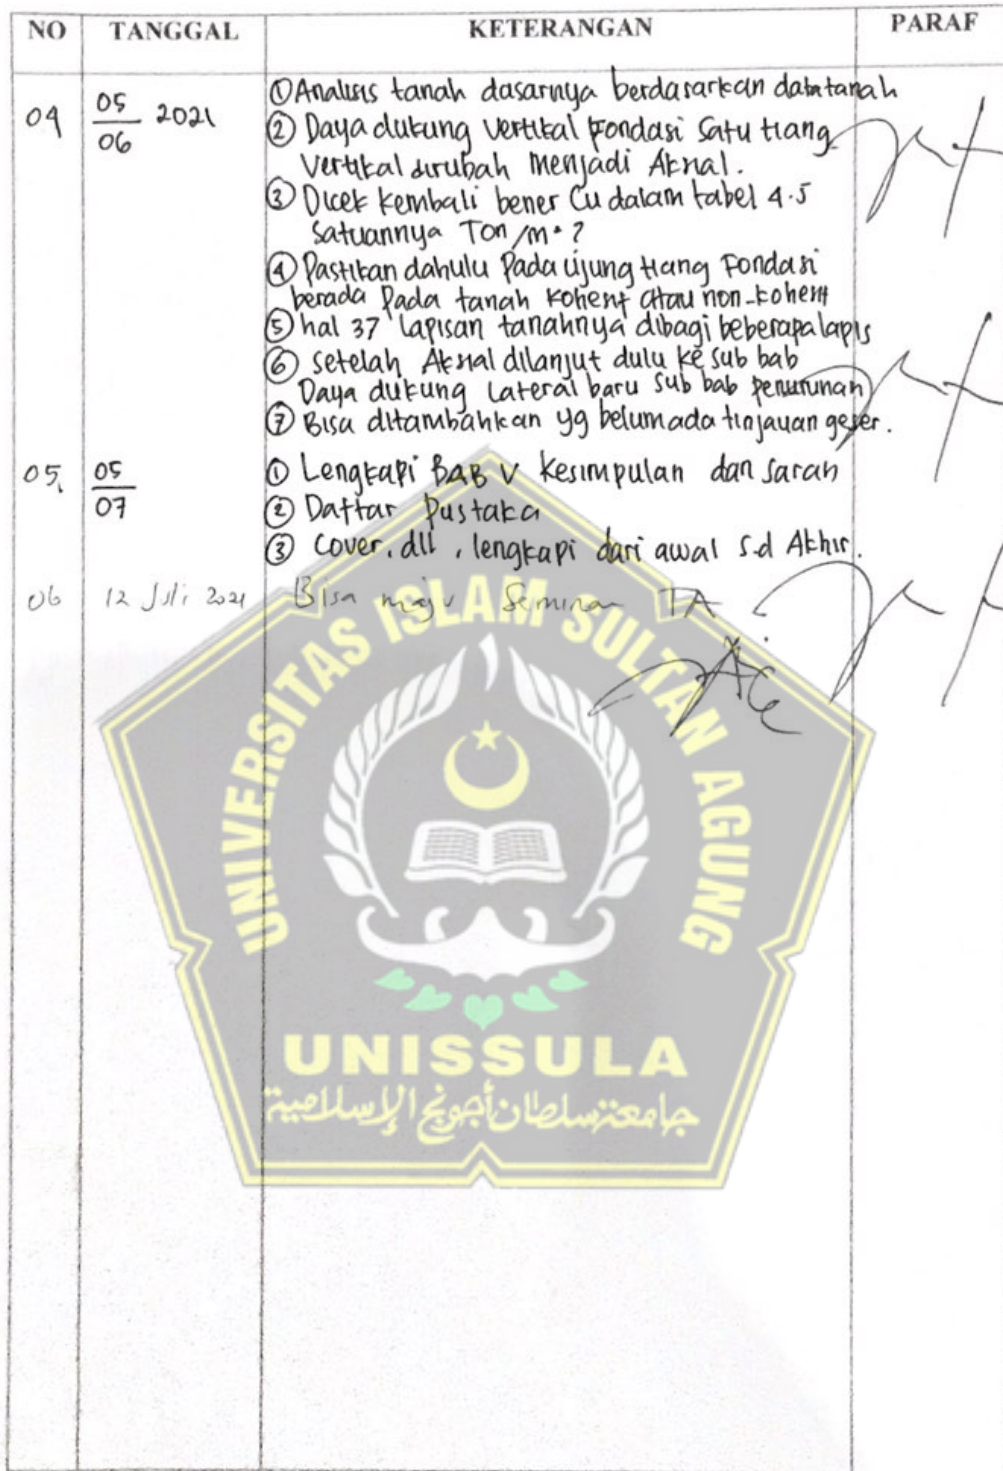 NO TANGGAL KETERANGAN PARAF
① Analisis tanah dasarnya berdasarkan data tanah
04 05/06 2021
② Daya dukung vertikal Fondasi Satu tiang
vertikal dirubah menjadi Aksial.
③ Dicek kembali bener Cu dalam tabel 4.5
Satuannya Ton/m² ?
④ Pastikan dahulu Pada ujung tiang Fondasi
berada Pada tanah kohesif atau non-kohesif
⑤ hal 37 lapisan tanahnya dibagi beberapa lapis
⑥ setelah Aksial dilanjut dulu ke sub bab
Daya dukung Lateral baru sub bab penurunan
⑦ Bisa ditambahkan yg belum ada tinjauan geser.
05. 05/07 ① Lengkapi BAB V kesimpulan dan saran
② Daftar Pustaka
③ Cover, dll, lengkapi dari awal s.d Akhir.
06 12 Juli 2021 Bisa maju Seminar TA
Acc
UNIVERSITAS ISLAM SULTAN AGUNG
UNISSULA
جامعة سلطان أجونج الإسلامية